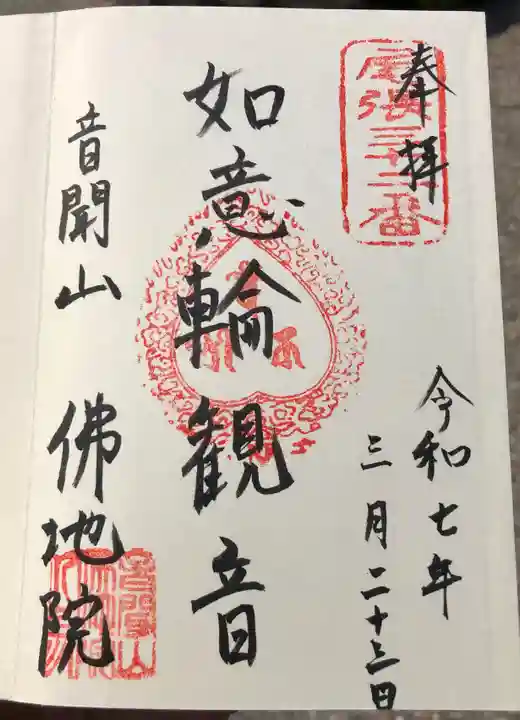 奉拝
尾張三十二番
令和七年
三月二十三日
如意輪観音
音聞山 佛地院
音聞山